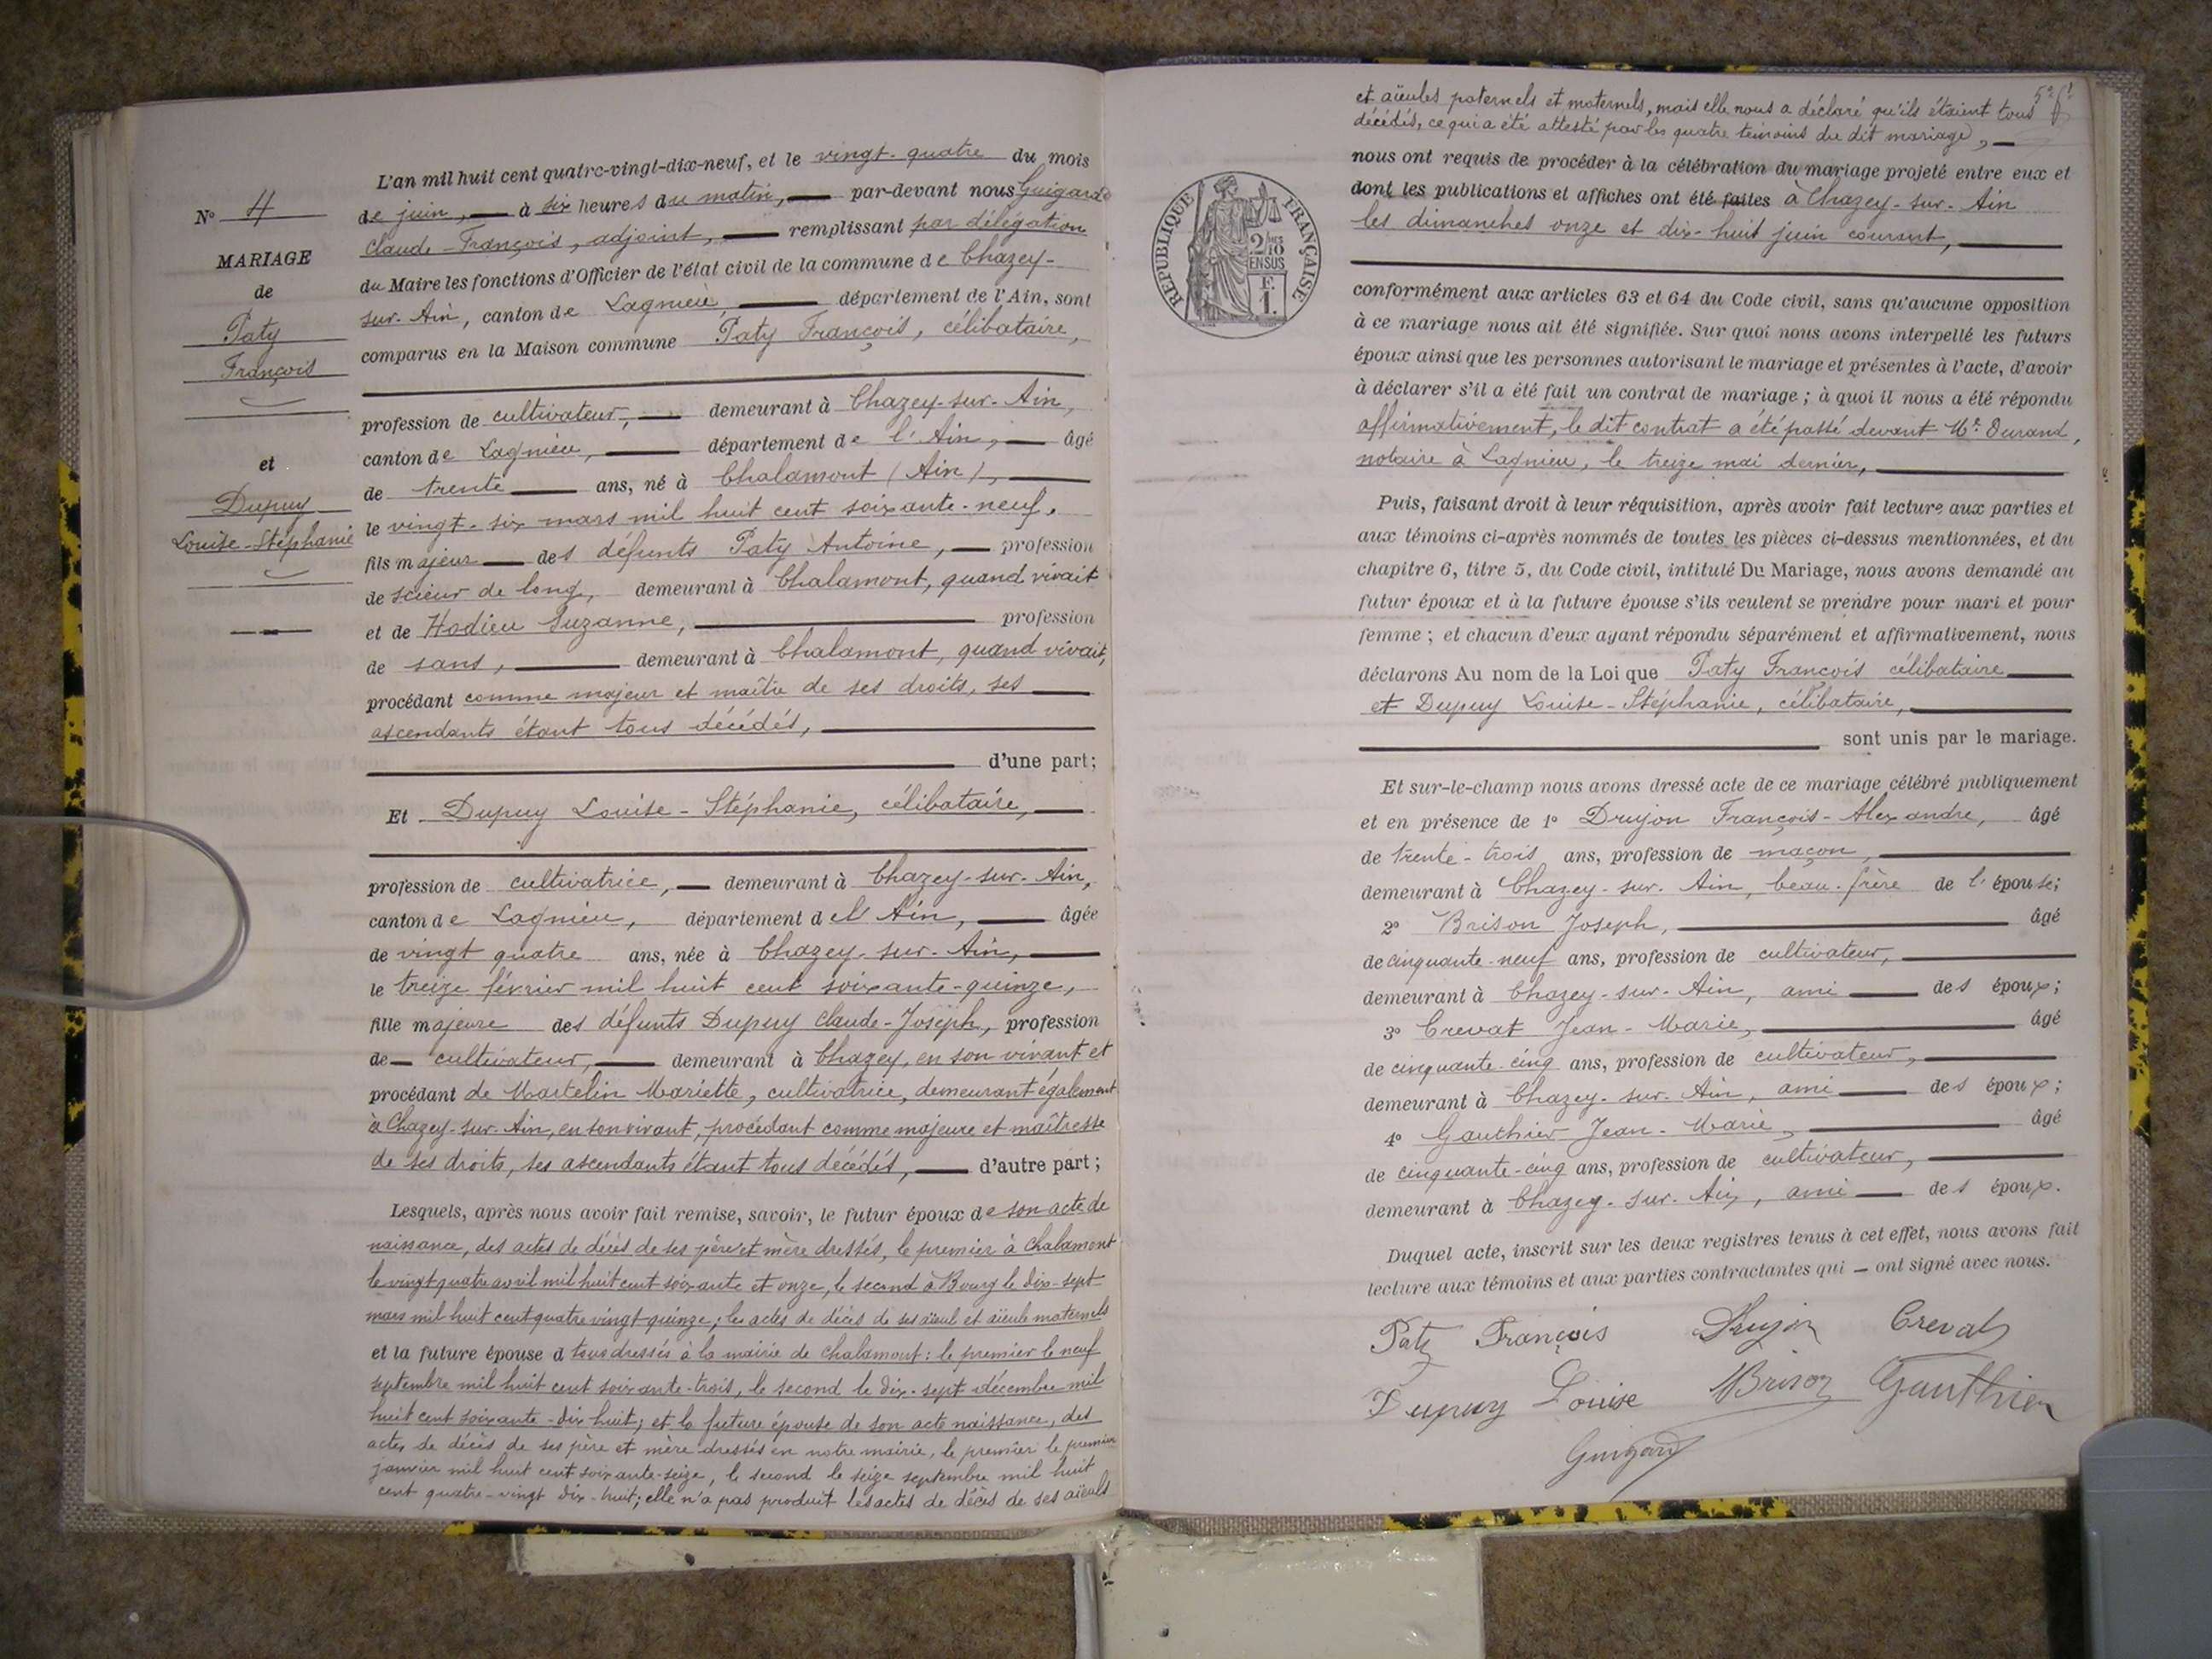 N° 4
MARIAGE
de
Paty
François
et
Dupuy
Louise-Stéphanie
L'an mil huit cent quatre-vingt-dix-neuf, et le vingt-quatre du mois
de juin, à six heures du matin, par-devant nous Guigard
Claude-François, adjoint, remplissant par délégation
du Maire les fonctions d'Officier de l'état civil de la commune de Chazey-
sur-Ain, canton de Lagnieu, département de l'Ain, sont
comparus en la Maison commune Paty François, célibataire,
profession de cultivateur, demeurant à Chazey-sur-Ain,
canton de Lagnieu, département de l'Ain, âgé
de trente ans, né à Chalamont (Ain),
le vingt-six mars mil huit cent soixante-neuf,
fils majeur des défunts Paty Antoine, profession
de scieur de long, demeurant à Chalamont, quand vivait
et de Hodieu Suzanne, profession
de sans, demeurant à Chalamont, quand vivait,
procédant comme majeur et maître de ses droits, ses
ascendants étant tous décédés,
d'une part;
Et Dupuy Louise-Stéphanie, célibataire,
profession de cultivatrice, demeurant à Chazey-sur-Ain,
canton de Lagnieu, département de l'Ain, âgée
de vingt quatre ans, née à Chazey-sur-Ain,
le treize février mil huit cent soixante-quinze,
fille majeure des défunts Dupuy Claude-Joseph, profession
de cultivateur, demeurant à Chazey, en son vivant et
procédant de Martelin Mariette, cultivatrice, demeurant également
à Chazey-sur-Ain, en son vivant, procédant comme majeure et maîtresse
de ses droits, ses ascendants étant tous décédés, d'autre part;
Lesquels, après nous avoir fait remise, savoir, le futur époux de son acte de
naissance, des actes de décès de ses père et mère dressés, le premier à Chalamont
le vingt quatre avril mil huit cent soixante et onze, le second à Bourg le dix-sept
mars mil huit cent quatre vingt-quinze; les actes de décès de ses aïeul et aïeule maternels
et la future épouse d tous dressés à la mairie de Chalamont: le premier le neuf
septembre mil huit cent soixante-trois, le second le dix-sept décembre mil
huit cent soixante-dix huit; et la future épouse de son acte naissance, des
actes de décès de ses père et mère dressés en notre mairie, le premier le premier
janvier mil huit cent soixante-seize, le second le seize septembre mil huit
cent quatre-vingt dix-huit; elle n'a pas produit les actes de décès de ses aïeuls
et aïeules paternels et maternels, mais elle nous a déclaré qu'ils étaient tous
décédés, ce qui a été attesté par les quatre témoins du dit mariage,
nous ont requis de procéder à la célébration du mariage projeté entre eux et
dont les publications et affiches ont été faites à Chazey-sur-Ain
les dimanches onze et dix-huit juin courant,
RÉPUBLIQUE FRANÇAISE
2/10 EN SUS
F. 1.
conformément aux articles 63 et 64 du Code civil, sans qu'aucune opposition
à ce mariage nous ait été signifiée. Sur quoi nous avons interpellé les futurs
époux ainsi que les personnes autorisant le mariage et présentes à l'acte, d'avoir
à déclarer s'il a été fait un contrat de mariage; à quoi il nous a été répondu
affirmativement, le dit contrat a été passé devant Me Durand,
notaire à Lagnieu, le treize mai dernier,
Puis, faisant droit à leur réquisition, après avoir fait lecture aux parties et
aux témoins ci-après nommés de toutes les pièces ci-dessus mentionnées, et du
chapitre 6, titre 5, du Code civil, intitulé Du Mariage, nous avons demandé au
futur époux et à la future épouse s'ils veulent se prendre pour mari et pour
femme; et chacun d'eux ayant répondu séparément et affirmativement, nous
déclarons Au nom de la Loi que Paty François célibataire
et Dupuy Louise-Stéphanie, célibataire,
sont unis par le mariage.
Et sur-le-champ nous avons dressé acte de ce mariage célébré publiquement
et en présence de 1° Drujon François-Alexandre, âgé
de trente-trois ans, profession de maçon,
demeurant à Chazey-sur-Ain, beau-frère de l'épouse;
2° Brison Joseph, âgé
de cinquante-neuf ans, profession de cultivateur,
demeurant à Chazey-sur-Ain, ami des époux;
3° Crevat Jean-Marie, âgé
de cinquante-cinq ans, profession de cultivateur,
demeurant à Chazey-sur-Ain, ami des époux;
4° Gauthier Jean-Marie, âgé
de cinquante-cinq ans, profession de cultivateur,
demeurant à Chazey-sur-Ain, ami des époux.
Duquel acte, inscrit sur les deux registres tenus à cet effet, nous avons fait
lecture aux témoins et aux parties contractantes qui ont signé avec nous.
Paty François Drujon Crevat
Dupuy Louise Brison Gauthier
Guigard